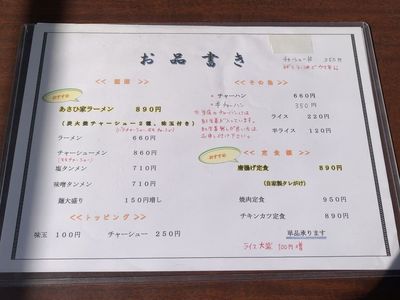 お品書き
<< 麺類 >>
おすすめ
あさひ家ラーメン 890円
(炭火焼チャーシュー2種、味玉付き)
ラーメン 660円
チャーシューメン 860円
塩タンメン 710円
味噌タンメン 710円
麺大盛り 150円増し
<< トッピング >>
味玉 100円 チャーシュー 250円
チャーシュー丼 350円
<< その他 >>
チャーハン 660円
半チャーハン 350円
ライス 220円
半ライス 120円
おすすめ
<< 定食類 >>
唐揚げ定食 890円
(自家製タレがけ)
焼肉定食 950円
チキンカツ定食 890円
単品承ります
ライス大盛 100円増